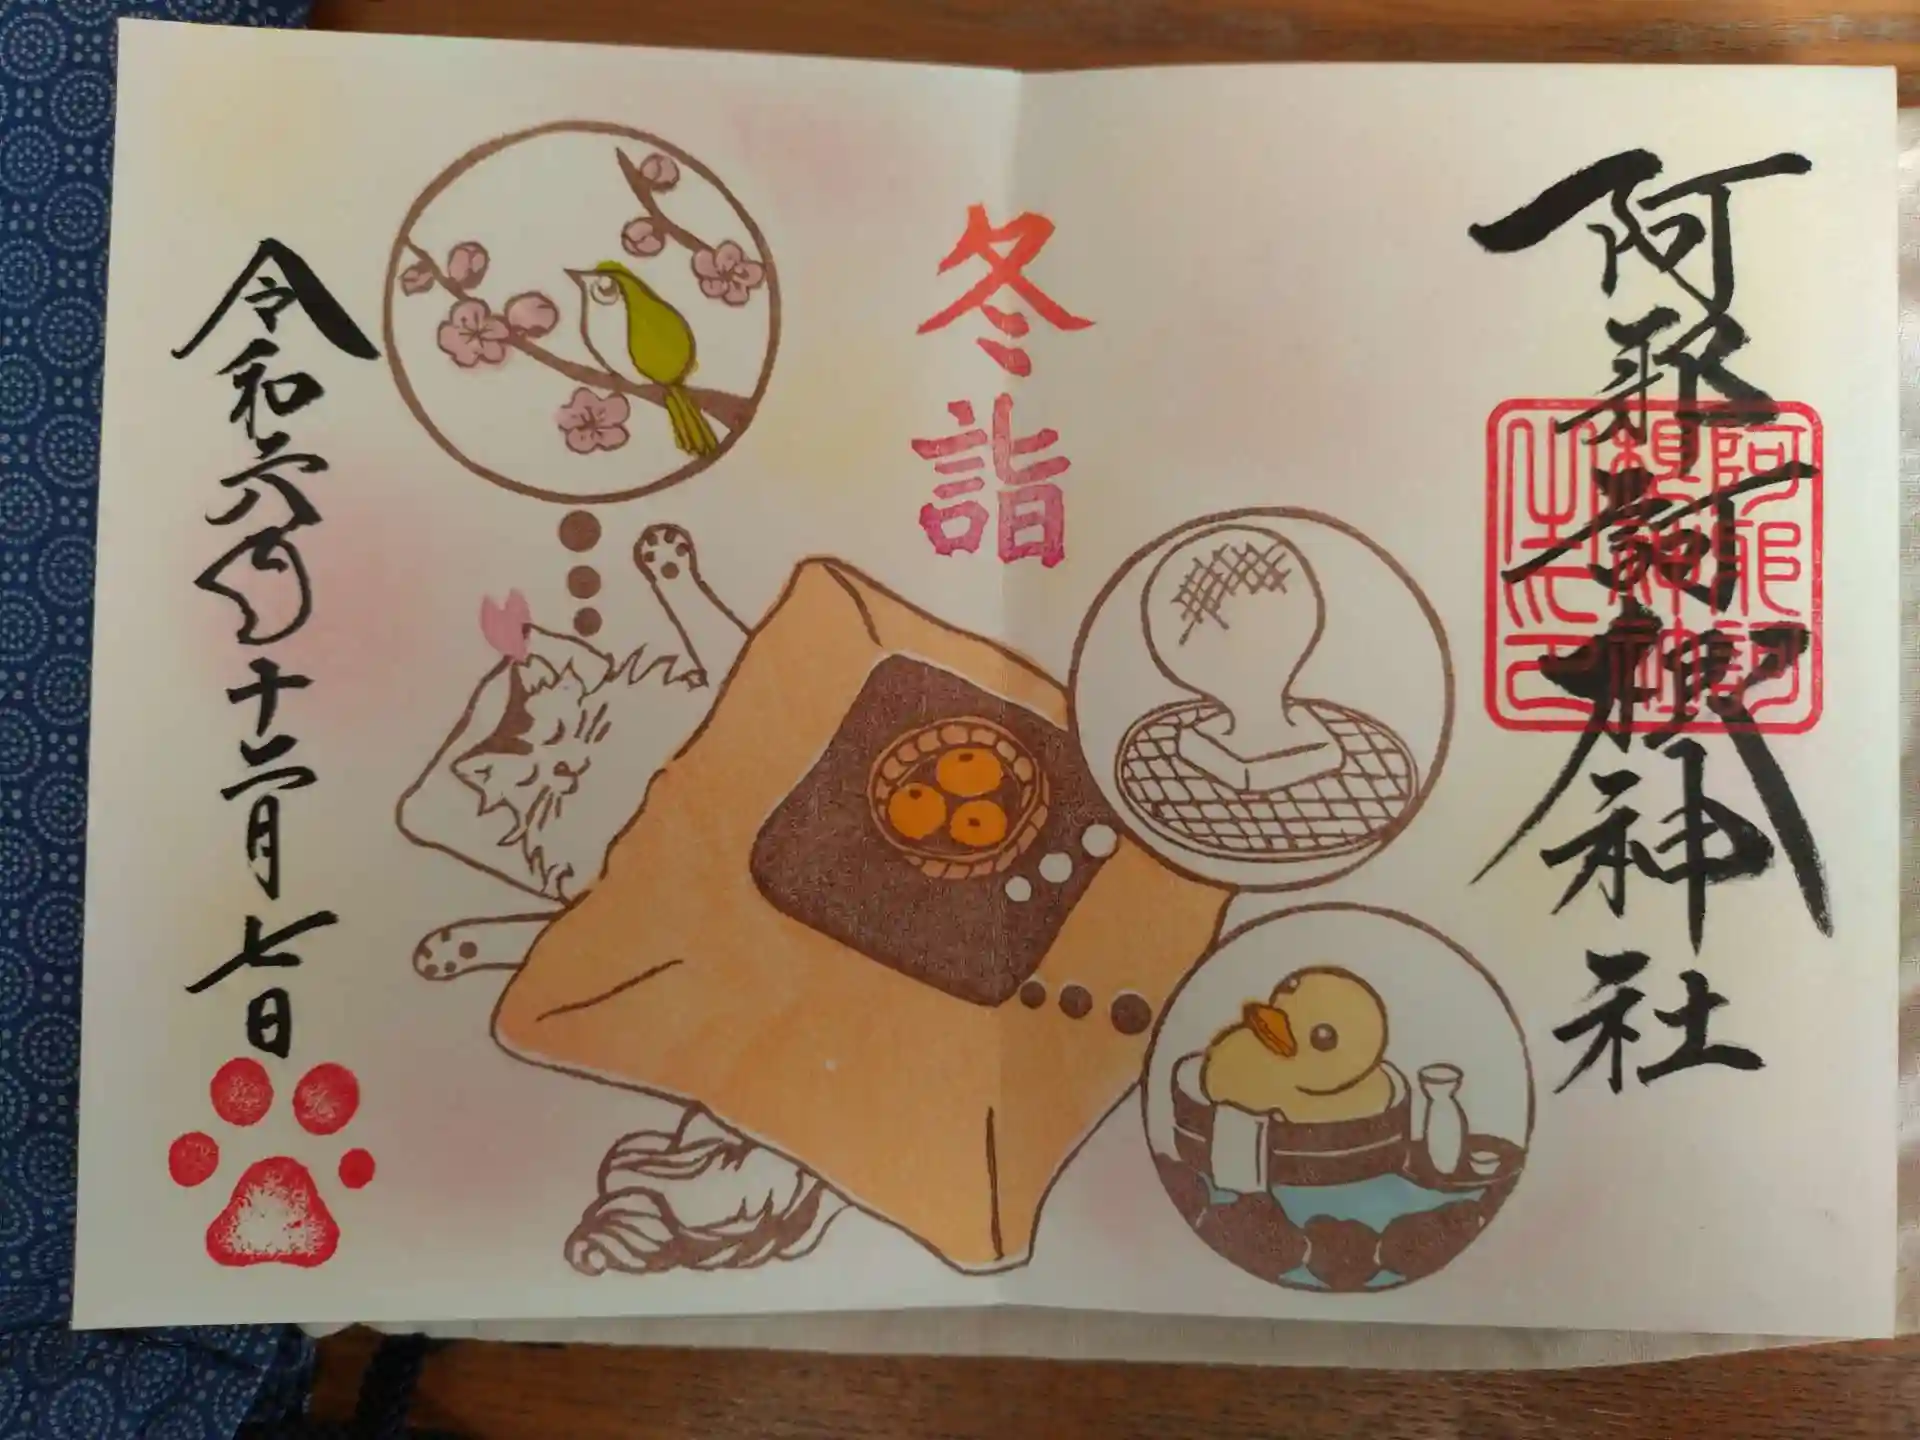 阿邪訶根神社
冬詣
令和六年十二月七日
阿邪訶
根神社
之印